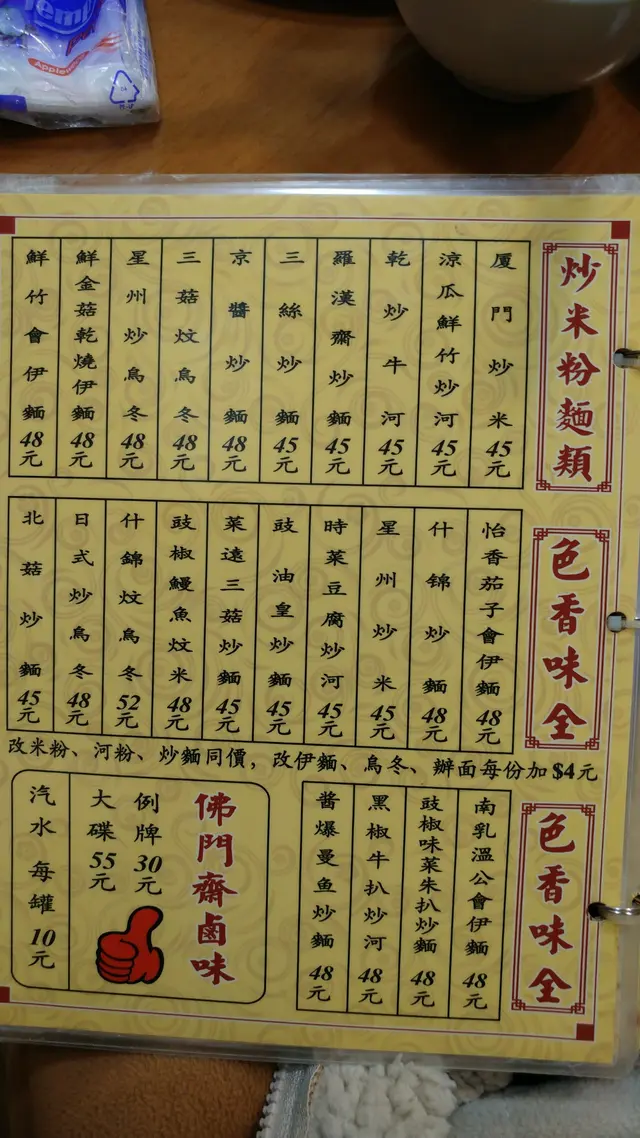 Tempo
Applewood
炒米粉麵類
厦門炒米 45元
涼瓜鮮竹炒河 45元
乾炒牛河 45元
羅漢齋炒麵 45元
三絲炒麵 45元
京醬炒麵 48元
三菇炆烏冬 48元
星州炒烏冬 48元
鮮金菇乾燒伊麵 48元
鮮竹會伊麵 48元
色香味全
怡香茄子會伊麵 48元
什錦炒麵 48元
星州炒米 45元
時菜豆腐炒河 45元
豉油皇炒麵 45元
菜遠三菇炒麵 45元
豉椒鰻魚炆米 48元
什錦炆烏冬 52元
日式炒烏冬 48元
北菇炒麵 45元
改米粉、河粉、炒麵同價，改伊麵、烏冬、辦面每份加$4元
色香味全
南乳溫公會伊麵 48元
豉椒味菜朱扒炒麵 48元
黑椒牛扒炒河 48元
醬爆曼魚炒麵 48元
佛門齋鹵味
例牌 30元
大碟 55元
汽水每罐 10元